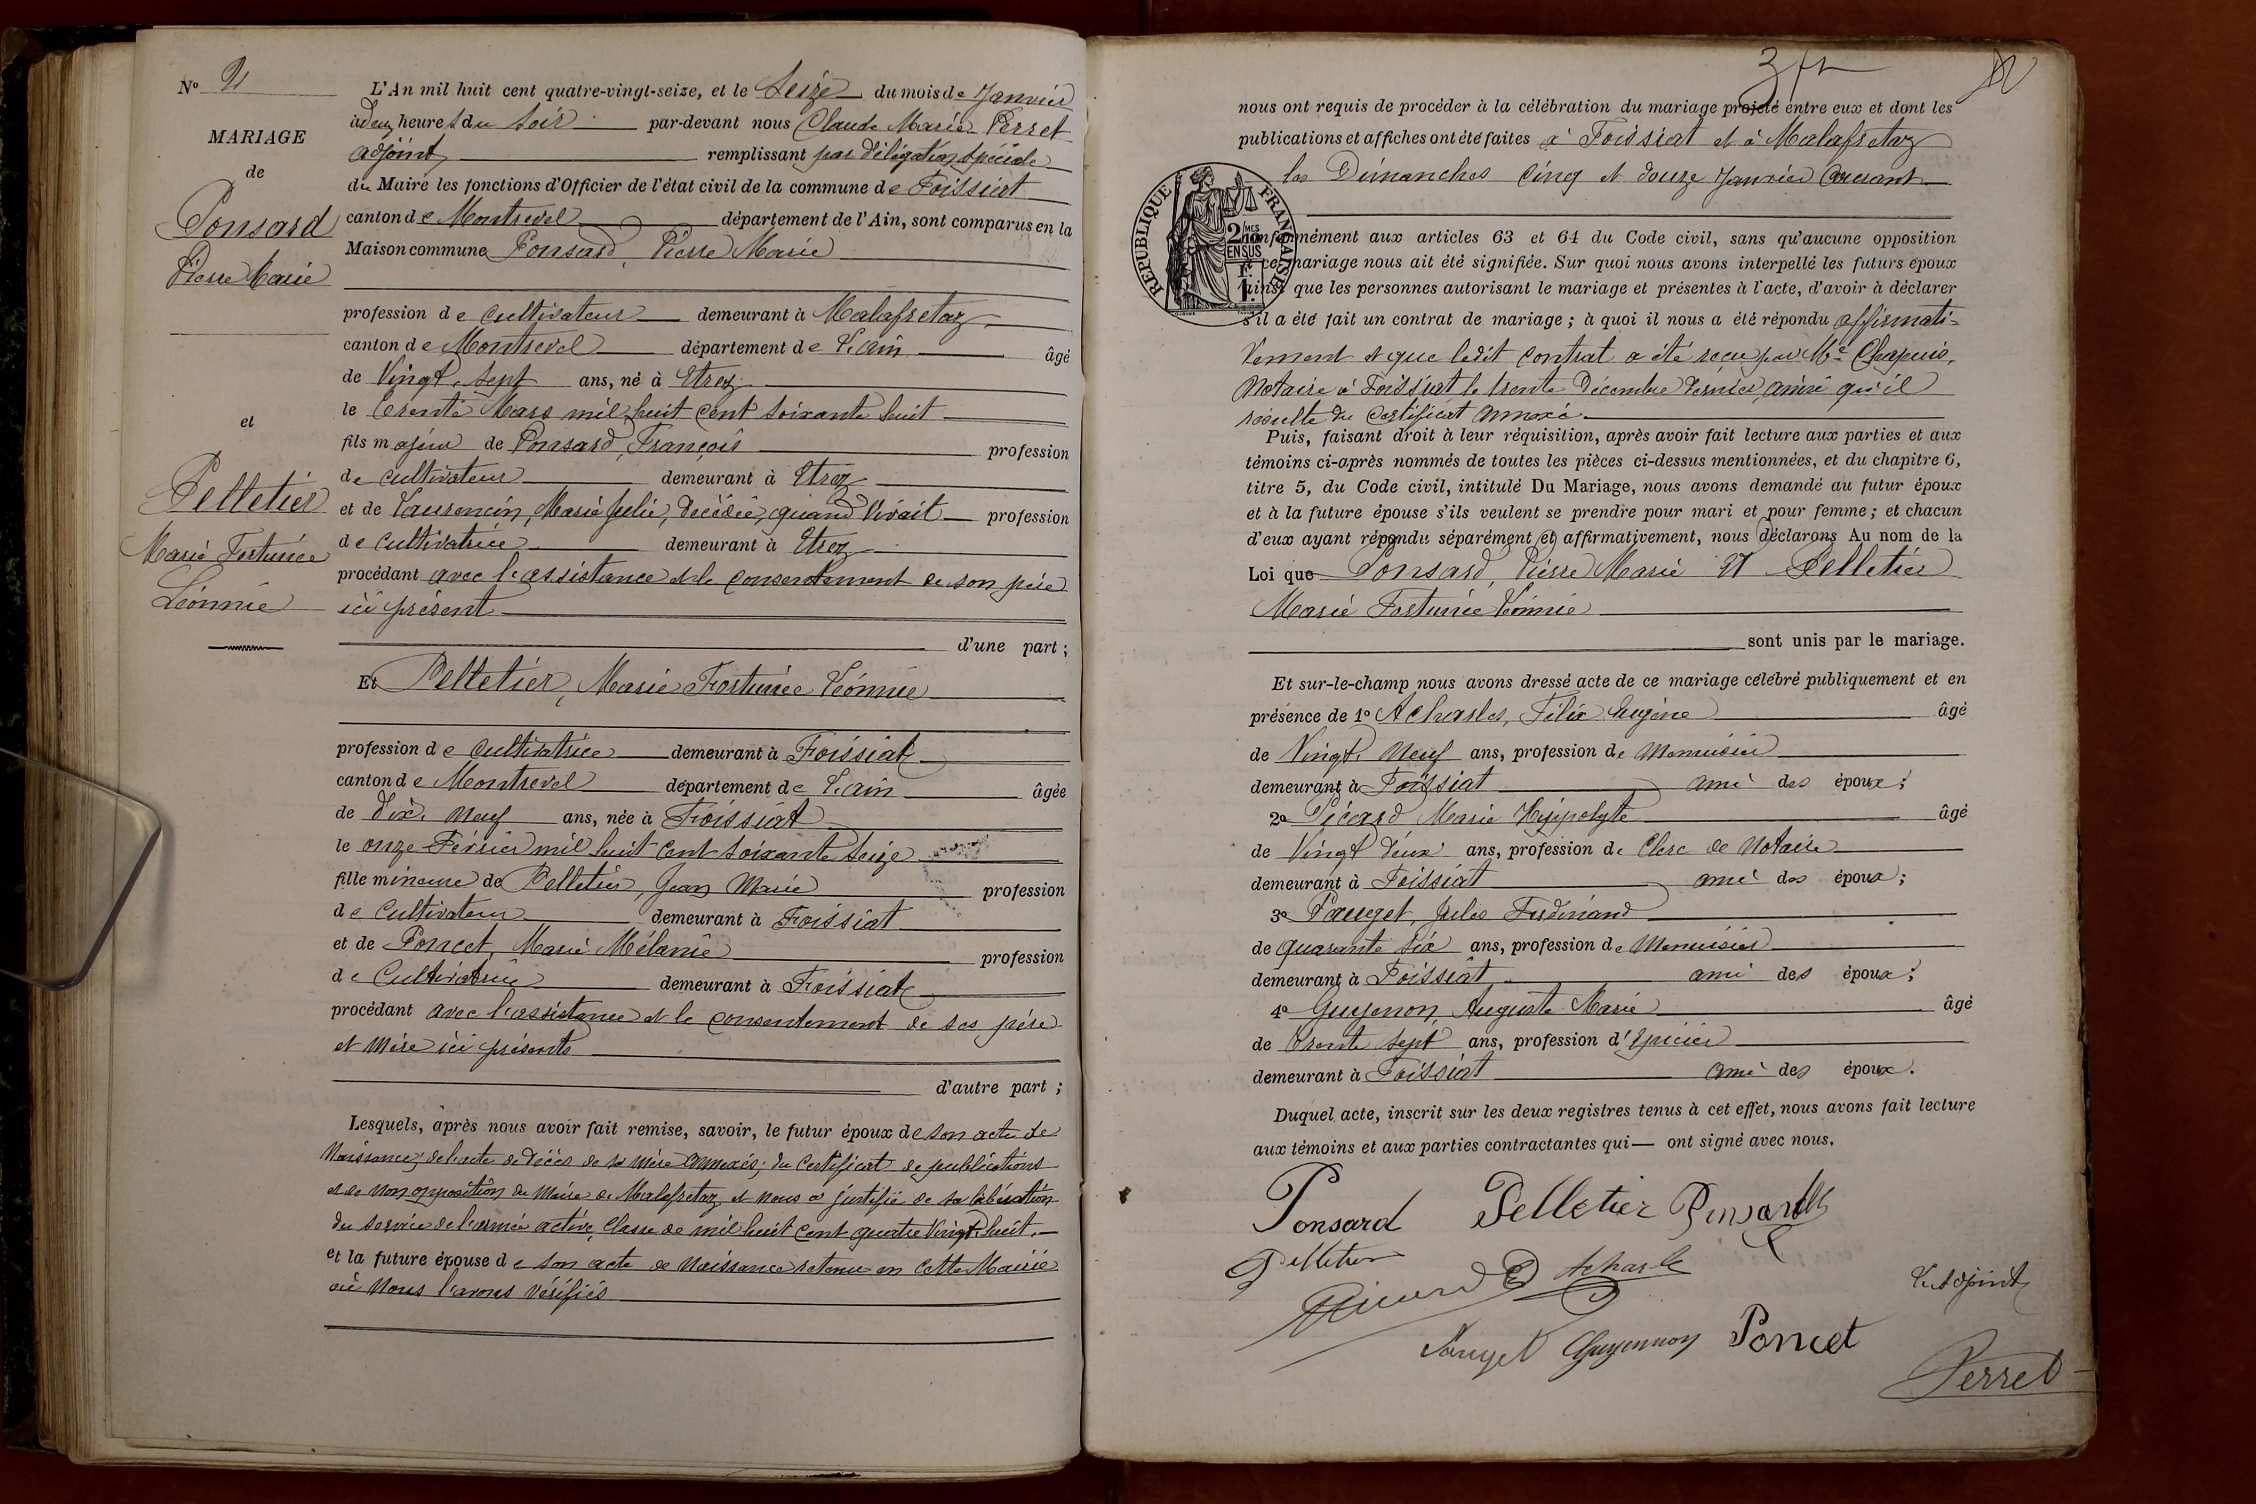 N° 2
MARIAGE
de
Ponsard
Pierre Marie
et
Pelletier
Marie Fortunée
Léonnie
L'An mil huit cent quatre-vingt-seize, et le Seize du mois de Janvier
à deux heures du soir par-devant nous Claude Marie Perret
adjoint remplissant par délégation spéciale
du Maire les fonctions d'Officier de l'état civil de la commune de Foissiat
canton de Montrevel département de l'Ain, sont comparus en la
Maison commune Ponsard, Pierre Marie
profession de cultivateur demeurant à Malafretaz
canton de Montrevel département de l'ain âgé
de Vingt-sept ans, né à Etrez
le trente Mars mil huit cent soixante huit
fils majeur de Ponsard, François profession
de cultivateur demeurant à Etrez
et de Laurencin, Marie Julie, décédée, quand vivait profession
de cultivatrice demeurant à Etrez
procédant avec l'assistance et le consentement de son père
ici présent
d'une part ;
Et Pelletier, Marie Fortunée Léonnie
profession de cultivatrice demeurant à Foissiat
canton de Montrevel département de l'ain âgée
de Dix-neuf ans, née à Foissiat
le onze Février mil huit cent soixante seize
fille mineure de Pelletier, Jean Marie profession
de cultivateur demeurant à Foissiat
et de Poncet, Marie Mélanie profession
de Cultivatrice demeurant à Foissiat
procédant avec l'assistance et le consentement de ses père
et mère ici présents
d'autre part ;
Lesquels, après nous avoir fait remise, savoir, le futur époux de son acte de
Naissance; de l'acte de décès de sa mère annexés; du certificat de publications
et de non opposition du Maire de Malafretaz et nous a justifié de sa libération
du service de l'armée active, classe de mil huit cent quatre vingt-huit.
et la future épouse de son acte de Naissance retenu en cette Mairie
où Nous l'avons vérifié
3 fr
nous ont requis de procéder à la célébration du mariage projeté entre eux et dont les
publications et affiches ont été faites à Foissiat et à Malafretaz
les Dimanches cinq et douze Janvier courant
REPUBLIQUE FRANÇAISE
2/10MES EN SUS
1F.
conformément aux articles 63 et 64 du Code civil, sans qu'aucune opposition
à ce mariage nous ait été signifiée. Sur quoi nous avons interpellé les futurs époux
ainsi que les personnes autorisant le mariage et présentes à l'acte, d'avoir à déclarer
s'il a été fait un contrat de mariage ; à quoi il nous a été répondu affirmati=
vement et que ledit contrat a été reçu par Me Chapuis,
Notaire à Foissiat le trente Décembre dernier, ainsi qu'il
résulte du certificat annexé.
Puis, faisant droit à leur réquisition, après avoir fait lecture aux parties et aux
témoins ci-après nommés de toutes les pièces ci-dessus mentionnées, et du chapitre 6,
titre 5, du Code civil, intitulé Du Mariage, nous avons demandé au futur époux
et à la future épouse s'ils veulent se prendre pour mari et pour femme ; et chacun
d'eux ayant répondu séparément et affirmativement, nous déclarons Au nom de la
Loi que Ponsard, Pierre Marie Et Pelletier
Marie Fortunée Léonnie
sont unis par le mariage.
Et sur-le-champ nous avons dressé acte de ce mariage célébré publiquement et en
présence de 1° Acharles, Félix Eugène âgé
de Vingt-Neuf ans, profession de Menuisier
demeurant à Foissiat ami des époux ;
2° Picard Marie Hippolyte âgé
de Vingt deux ans, profession de Clerc de Notaire
demeurant à Foissiat ami des époux ;
3° Pauget, Jules Ferdinand
de quarante six ans, profession de Menuisier
demeurant à Foissiat ami des époux ;
4° Guyennon, Auguste Marie âgé
de trente sept ans, profession d'Epicier
demeurant à Foissiat ami des époux.
Duquel acte, inscrit sur les deux registres tenus à cet effet, nous avons fait lecture
aux témoins et aux parties contractantes qui — ont signé avec nous.
Ponsard Pelletier Ponsard
Pelletier
Picard Acharle
L'adjoint
Pauget Guyennon Poncet
Perret